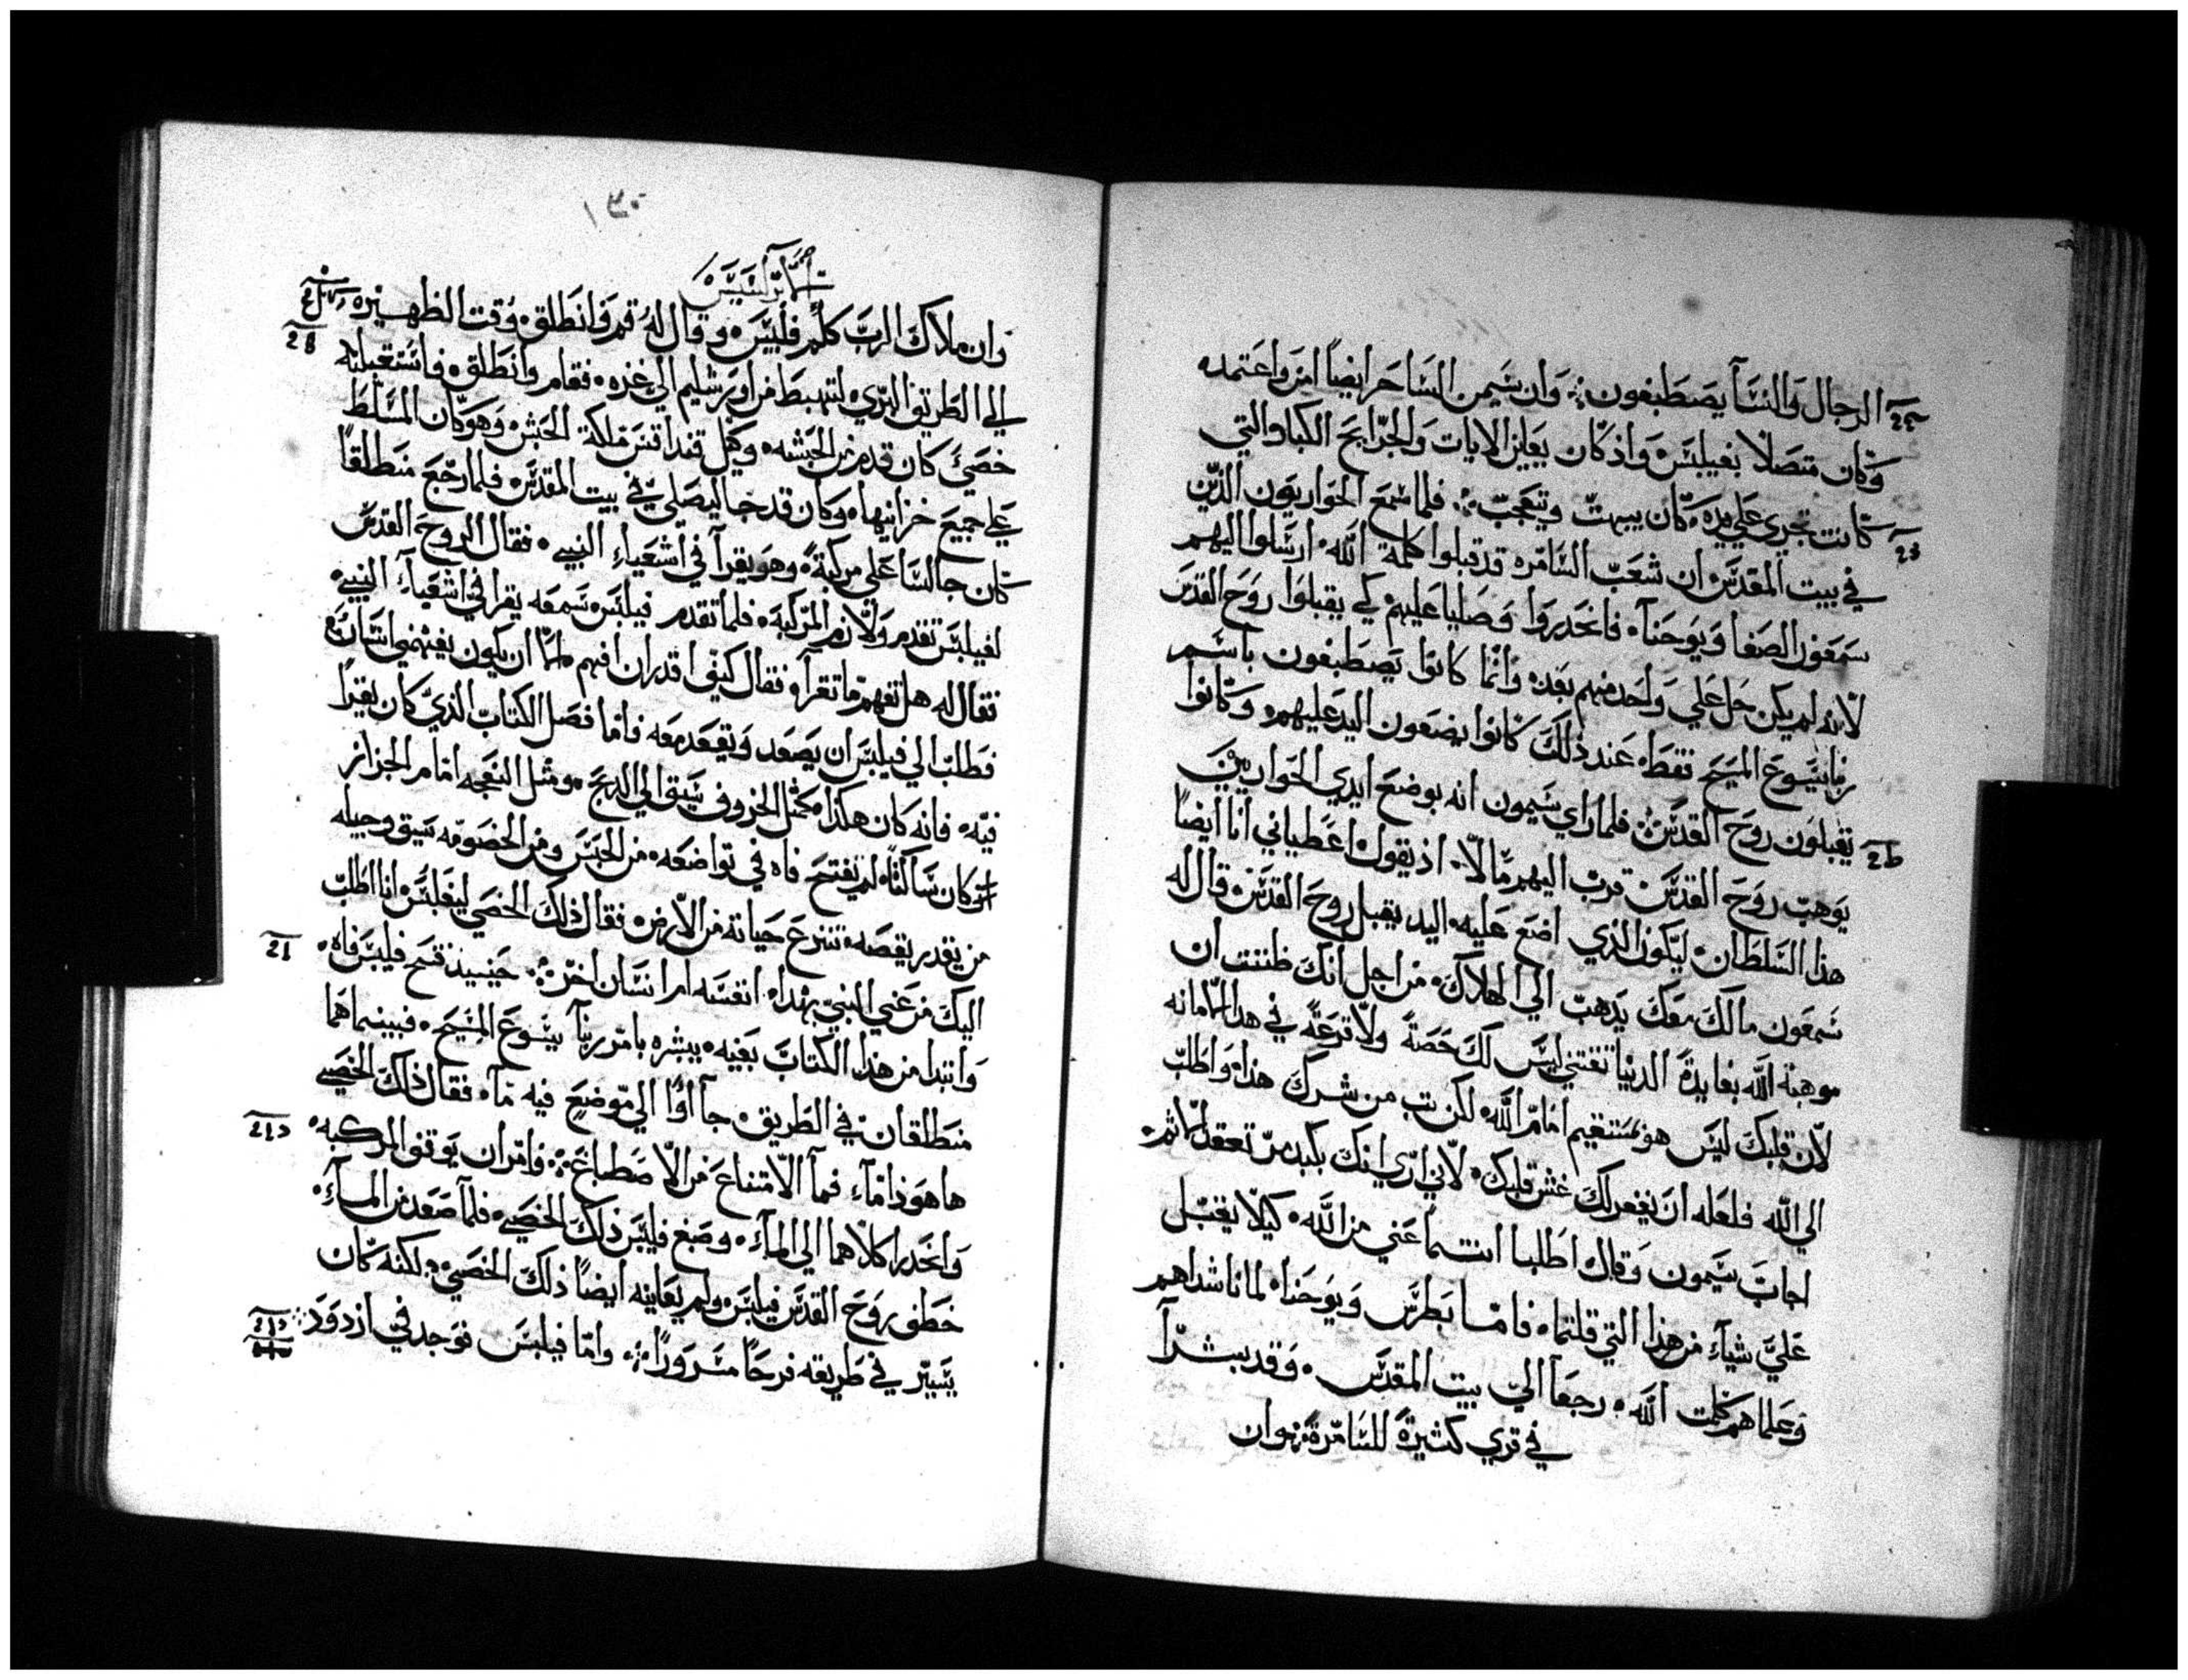 الرجال والنسآ يصطبغون ؞ وان سيمن الساحر ايضاً امن واعتمد
وكان متصلاً بفيلبس واذ كان يعاين الايات والجرايح الكبار التي
كانت تجري علي يده كان يبهت ويتعجب ؞ فلما سمع الحواريون الذين
في بيت المقدس ان شعب السامره قد قبلوا كلمة الله ارسلوا اليهم
سمعون الصفا ويوحنا فانحدروا وصليا عليهم كي يقبلوا روح القدس
لانه لم يكن حل علي واحد منهم بعد وانما كانوا يصطبغون باسم
ربنا يسوع المسيح فقط عند ذلك كانوا يضعون اليد عليهم وكانوا
يقبلون روح القدس ؞ فلما راي سيمون انه بوضع ايدي الحواريين
يوهب روح القدس قرب اليهم مالاً اذ يقول اعطياني انا ايضاً
هذا السلطان ليكون الذي اضع عليه اليد يقبل روح القدس قال له
سمعون مالك معك يذهب الي الهلاك من اجل انك ظننت ان
موهبة الله بفايدة الدنيا تقتني ليس لك حصة ولا قرعة في هذا الامانه
لان قلبك ليس هو مستقيم امام الله لكن تب من شرك هذا واطلب
الي الله فلعله ان يغفر لك غش قلبك لاني اري انك بكبد مر تعقد الاثم
اجاب سيمون وقال اطلبا انتما عني من الله كيلا يقبل
علي شياء من هذا التي قلتما فاما بطرس ويوحنا لما ناشداهم
وعلماهم كلمت الله رجعا الي بيت المقدس وقد بشرا
في قري كثيرة للسامرة ؞ وان
١٣٠
وان ملاك الرب كلم فلبس وقال له قم وانطلق وقت الظهيره
الي الطريق البري لتهبط من اورشليم الي غزه فقام وانطلق فاستقبله
خصي كان قدم من الحبشه وكيل قنداقس ملكة الحبش وهو كان المسلط
علي جميع خزانيها وكان قد جا ليصلي في بيت المقدس فلما رجع منطلقاً
كان جالساً علي مركبة وهو يقرأ في اشعياء النبي فقال الروح القدس
لفيلبس تقدم ولازم المركبه فلما تقدم فيلبس سمعه يقرا في اشعياء النبي
فقال له هل تفهم ما تقرأ فقال كيف اقدر ان افهم الا ان يكون يفهمني انسان
فطلب الي فيلبس ان يصعد ويقعد معه فاما فصل الكتاب الذي كان يقرا
فيه فانه كان هكذا مثل الخروف سيق الي الذبح ومثل النعجه امام الجزاز
كان ساكتاً لم يفتح فاه في تواضعه من الحبس ومن الخصومه سيق وجيله
من يقدر يقصه تنزع حياته من الارض فقال ذلك الخصي لفيلبس انا اطلب
اليك من عني النبي بهذا انفسه ام انسان اخر ؞ حينيذ فتح فيلبس فاه
وابتدا من هذا الكتاب بعينه يبشره بامر ربنا يسوع المسيح فبينما هما
منطلقان في الطريق جآ اوا الي موضع فيه مآ فقال ذلك الخصي
ها هوذا مآء فمآ الامتناع من الاصطباغ ؞ فامر ان يوقف المركبه
وانحدرا كلاهما الي المآء وصبغ فيلبس ذلك الخصي فلما صعد من المآء
خطف روح القدس فيلبس ولم يعاينه ايضاً ذلك الخصي لكنه كان
يسير في طريقه فرحاً مسروراً ؞ واما فيلبس فوجد في ازدود